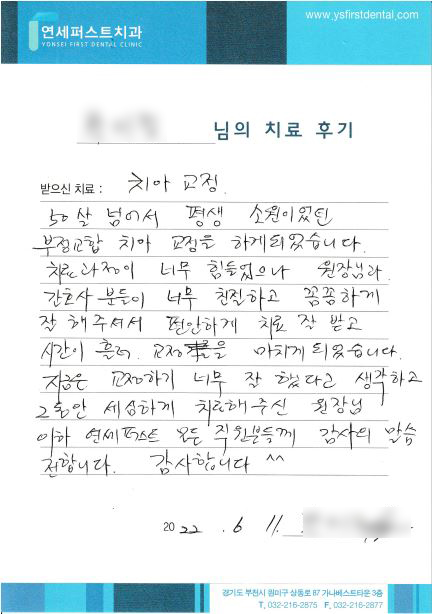 연세퍼스트치과
YONSEI FIRST DENTAL CLINIC
www.ysfirstdental.com
님의 치료 후기
받으신 치료 : 치아 교정.
50살 넘어서 평생 소원이었던
부정교합 치아 교정을 하게되었습니다.
치료과정이 너무 힘들었으나 원장님과
간호사 분들이 너무 친절하고 꼼꼼하게
잘 해주셔서 편안하게 치료 잘 받고
시간이 흘러 교정을 마치게 되었습니다.
지금은 교정하기 너무 잘 했다고 생각하고
2동안 세심하게 치료해주신 원장님
이하 연세퍼스트 모든 직원분들께 감사의 말씀
전합니다. 감사합니다 ^^
2022. 6 11.
경기도 부천시 원미구 상동로 87 가나베스트타운 3층
T. 032-216-2875 F. 032-216-2877